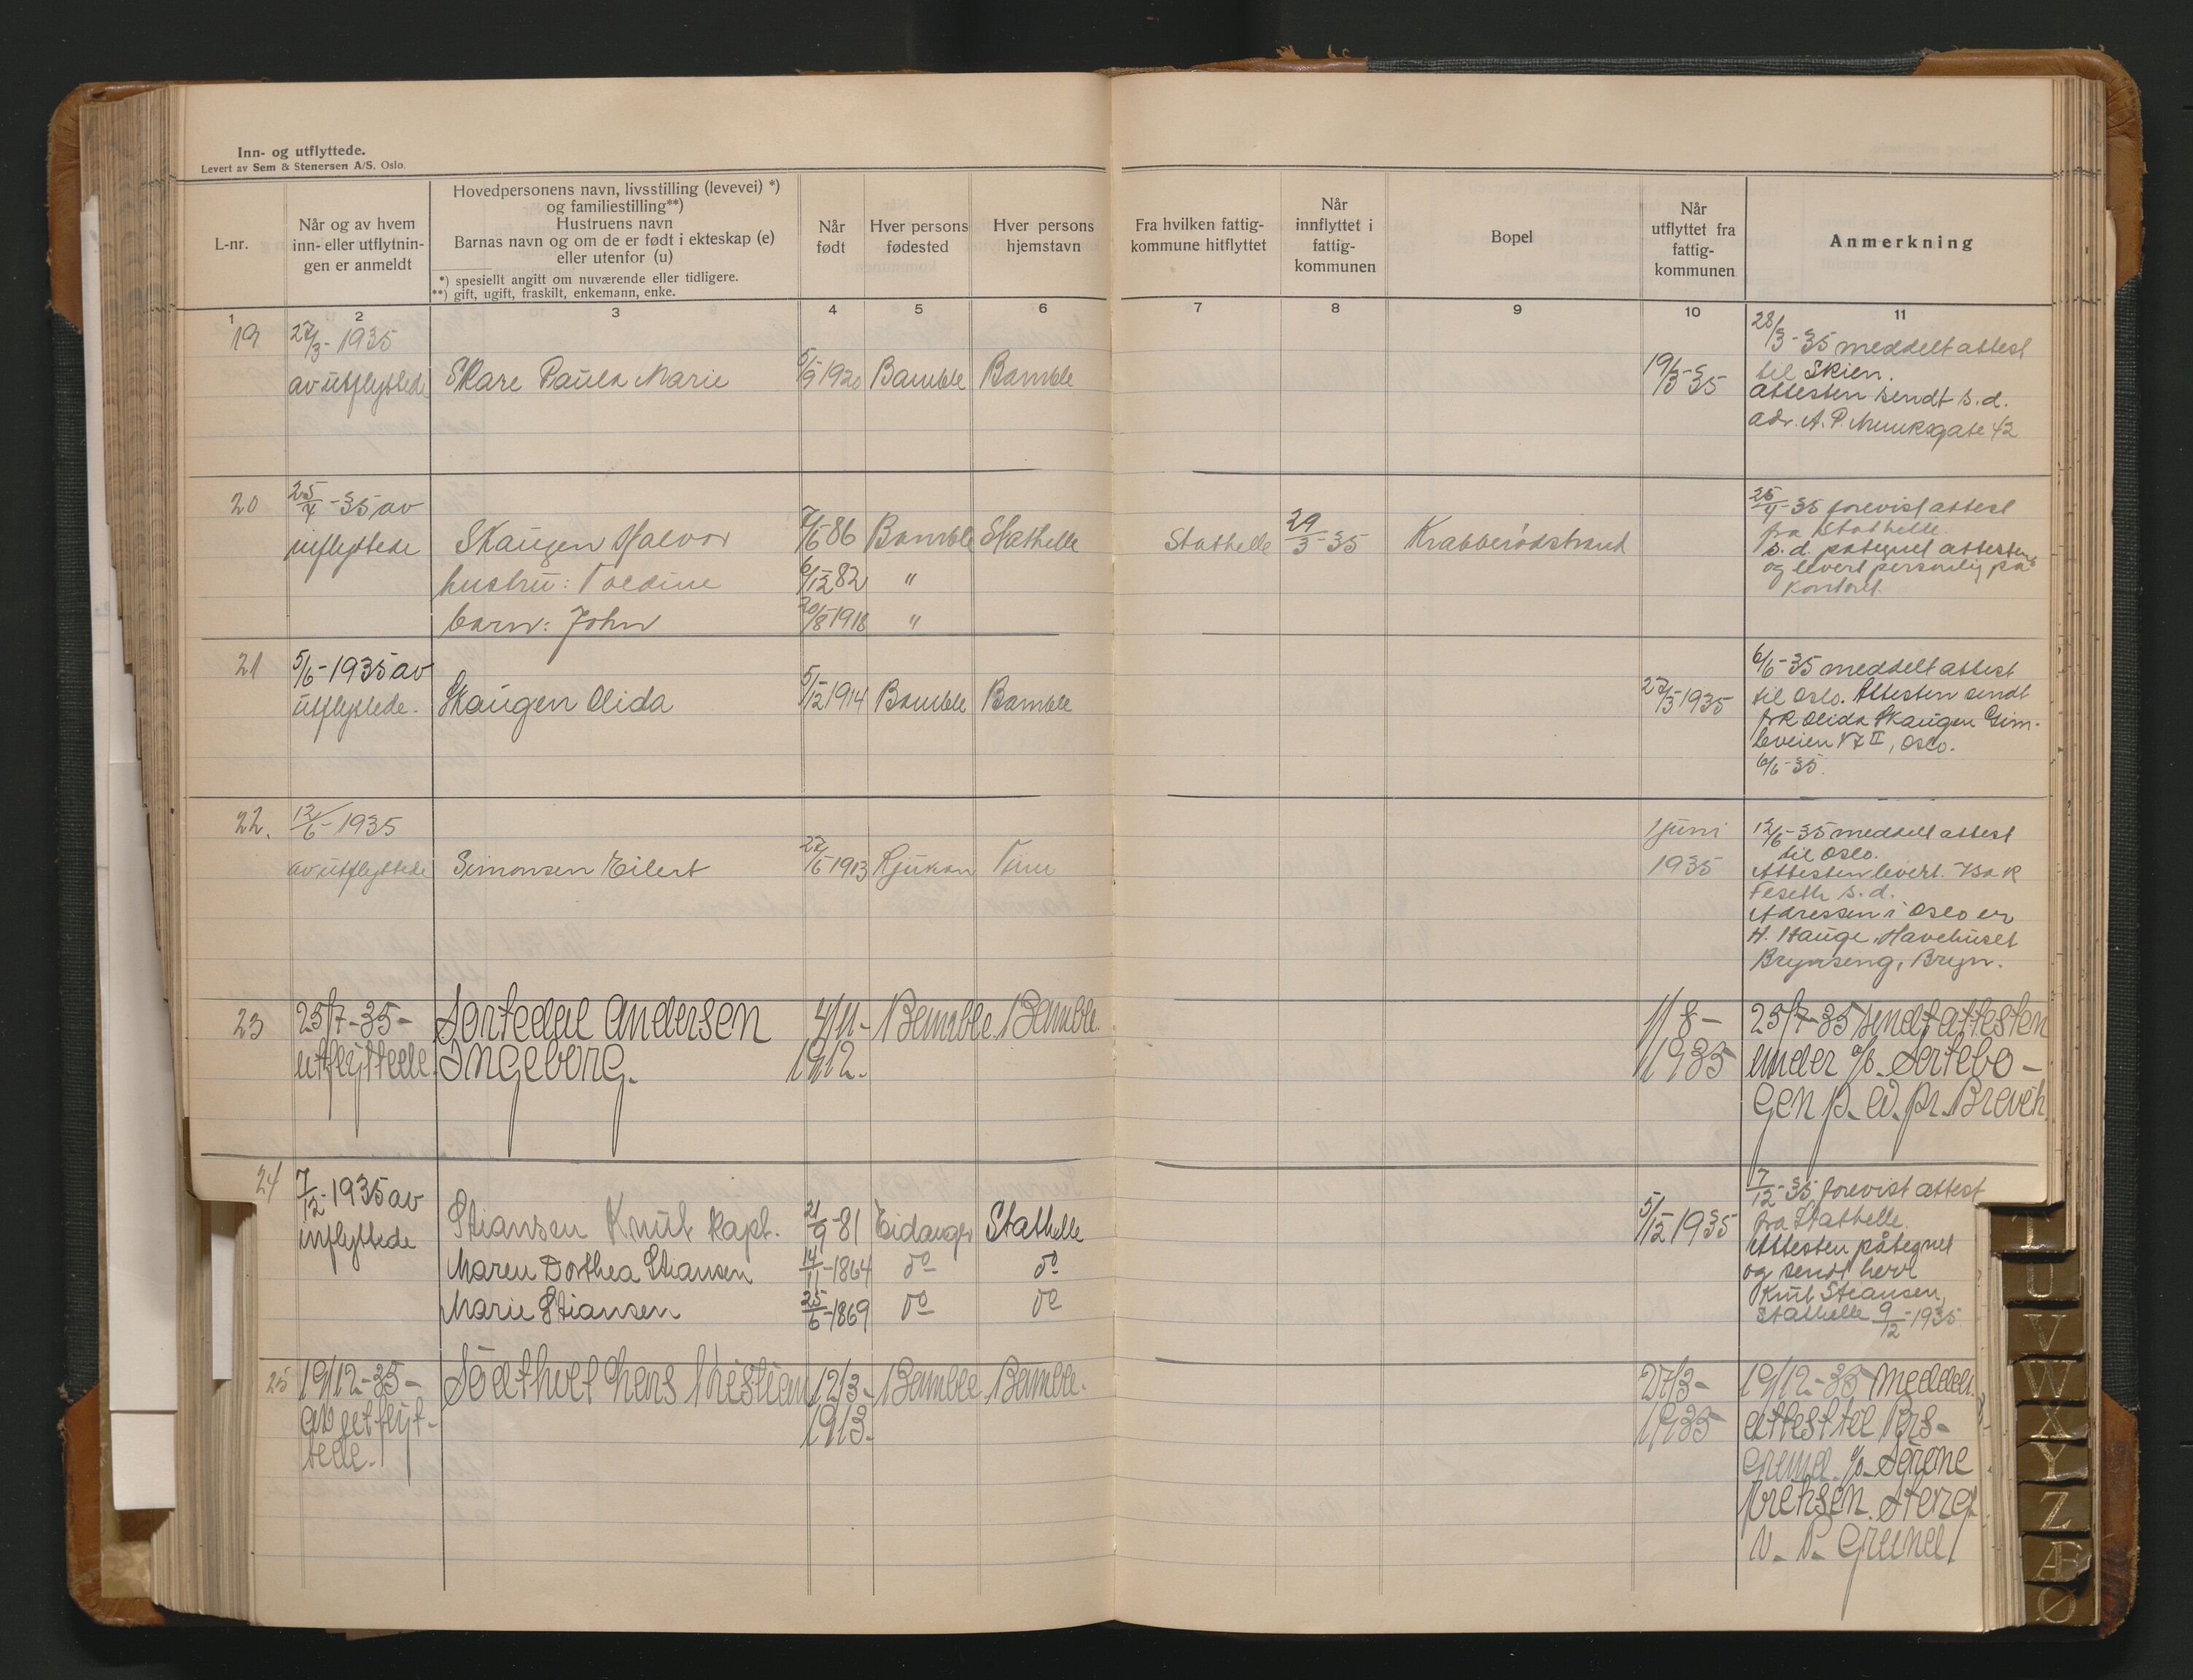 Inn- og utflyttede.
Levert av Sem & Stenersen A/S. Oslo.
L-nr.
Når og av hvem
inn- eller utflytnin-
gen er anmeldt
Hovedpersonens navn, livsstilling (levevei) *)
og familiestilling**)
Hustruens navn
Barnas navn og om de er født i ekteskap (e)
eller utenfor (u)
*) spesiellt angitt om nuværende eller tidligere.
**) gift, ugift, fraskilt, enkemann, enke.
Når
født
Hver persons
fødested
Hver persons
hjemstavn
Fra hvilken fattig-
kommune hitflyttet
Når
innflyttet i
fattig-
kommunen
Bopel
Når
utflyttet fra
fattig-
kommunen
Anmerkning
1 2 3 4 5 6 7 8 9 10 11
19 27/3-1935 28/3-35 meddelt attest
av utflyttede Skare Paula Marie 5/9 1920 Bamble Bamble 19/3-35 til Skien.
Attesten sendt s.d.
adr. A. P. Munksgate 42
20 25/4-35 av 25/4-35 forevist attest
innflyttede Skaugen Halvor 7/6 86 Bamble Stathelle Stathelle 29/3-35 Krabberødstrand fra Stathelle.
s.d. påtegnet attesten
hustru: 6/12 82 " og levert personlig på
kontoret.
barn: John 20/8 1918 "
21 5/6-1935 av 6/6-35 meddelt attest
utflyttede. Skaugen Olida 5/12 1914 Bamble Bamble 27/5 1935 til Oslo. Attesten sendt
frk Olida Skaugen Gim-
leveien 17 II, Oslo.
6/6-35.
22. 12/6-1935 1 juni 12/6-35 meddelt attest
til Oslo.
av utflyttede Simonsen Eilert 27/6 1913 Rjukan Tinn 1935 Attesten levert Isak
Feseth s.d.
Adressen i Oslo er
H. Hauge, Havehuset
Brynseng, Bryn.
23 25/7-35- Sortedal Andersen 4/11- Bamble Bamble. 1/8- 25/7-35 sendt attesten
utflyttede. Ingeborg. 1912. 1935 under a/s. Sortebo-
gen p. å. pr. Brevik
24 7/12-1935 av 7/12-35 forevist attest
innflyttede Stiansen Knut kapt. 21/9-81 Eidanger Stathelle 5/12 1935 fra Stathelle.
Attesten påtegnet
Maren Dorthea Stiansen 14/11-1864 do do og sendt herr
Knut Stiansen,
Marie Stiansen 25/6-1869 do do Stathelle 9/12-1935.
25 19/12-35- Lars Kristian 12/3- Bamble Bamble. 27/3- 19/12-35 meddelt
av utflyt- 1913. 1935 attest til Pors-
tede. grund.
T
U
V
W
X
Y
Z
Æ
Ø